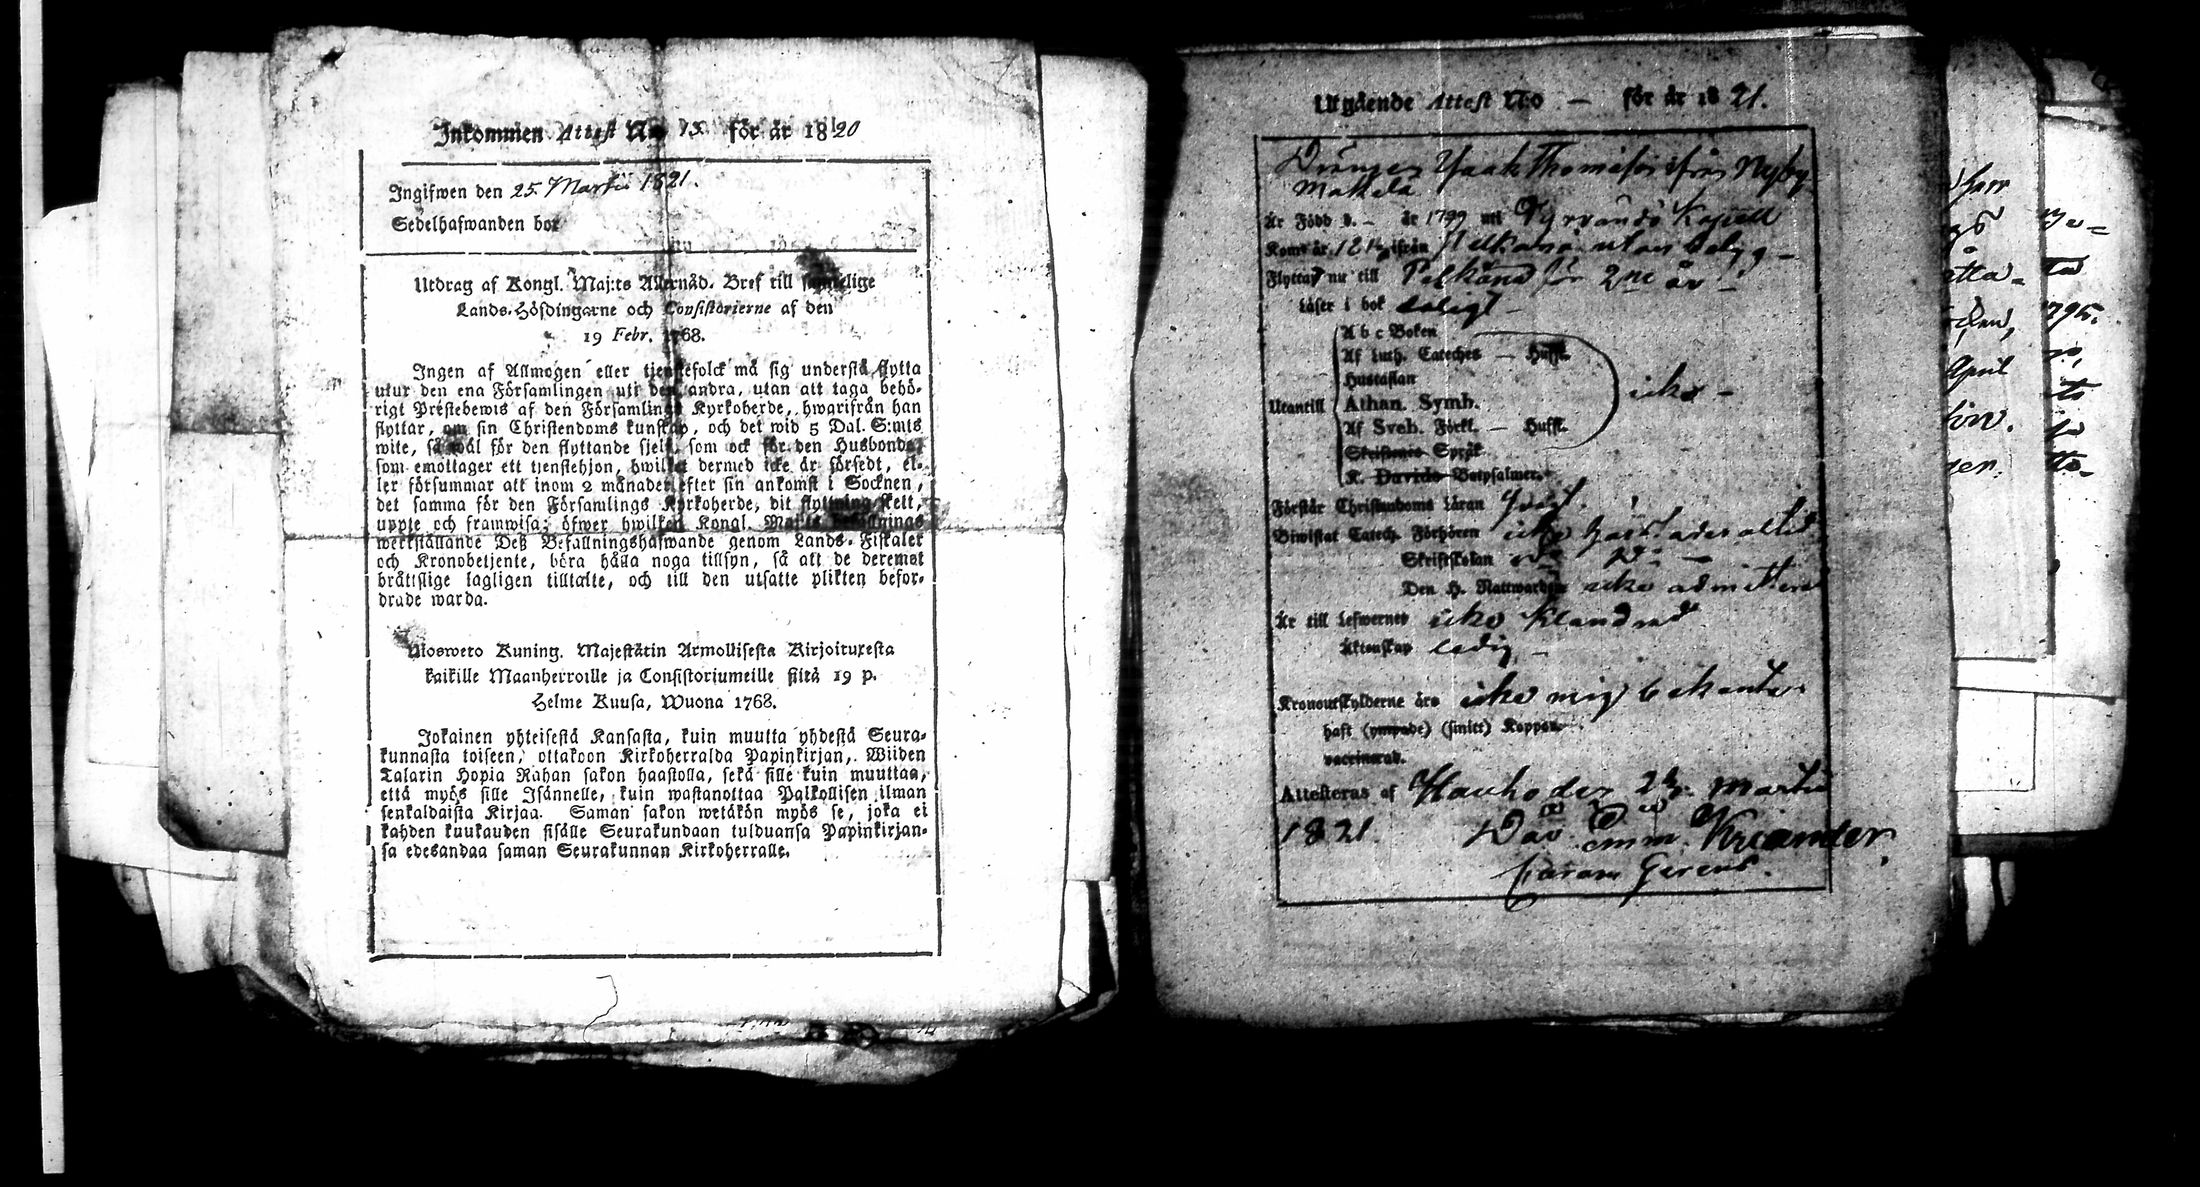 Inkommen Attest No 15. för år 1820
Ingifwen den 25. Martii 1821.
Sedelhafwanden bor
Utdrag af Kongl. Maj:ts Allernåd. Bref till samtelige
Lands-Höfdingarne och Consistorierne af den
19 Febr. 1768.
Ingen af Allmogen eller tjenstefolck må sig understå flytta
utur den ena Församlingen uti den andra, utan att taga behö-
rigt Prestebewis af den Församlings Kyrkoherde, hwarifrån han
flyttar, om sin Christendoms kunskap, och det wid 5 Dal. S:mts
wite, så wäl för den flyttande sielf, som ock för den Husbonde,
som emottager ett tjenstehjon, hwilket dermed icke är försedt, el-
ler försummar att inom 2 månader efter sin ankomst i Socknen,
det samma för den Församlings Kyrkoherde, dit flyttning skett,
uppte och framwisa; öfwer hwilken Kongl. Maj:ts Befallnings
werkställande Deß Befallningshafwande genom Lands-Fiskaler
och Kronobetjente, böra hålla noga tillsyn, så att de deremot
bråttslige lagligen tilltalte, och till den utsatte plikten befor-
drade warda.
Ulosweto Kuning. Majestätin Armollisesta Kirjoituxesta
kaikille Maanherroille ja Consistoriumeille siitä 19 p.
Helme Kuusa, Wuona 1768.
Jokainen yhteisestä Kansasta, kuin muutta yhdestä Seura-
kunnasta toiseen, ottakoon Kirkoherralda Papinkirjan, Wiiden
Talarin Hopia Rahan sakon haastolla, sekä sille kuin muuttaa,
että myös sille Isännelle, kuin wastanottaa Palkollisen ilman
senkaldaista Kirjaa. Saman sakon wetäkön myös se, joka ei
kahden kuukauden sisälle Seurakundaan tulduansa Papinkirjan-
sa edesandaa saman Seurakunnan Kirkoherralle.
Utgående Attest N:o — för år 1821.
Drängen Isaak Thomasson ifrån Nyby
Makela
Är Född d. — år 1799 uti Tyrvändö Kapell
Kom år 18 ifrån Pelkäne utan betyg —
Flyttar nu till Pelkäne för 2ne år —
Läser i bok
A b c Boken
Af Luth. Cateches — Hufst.
Hustaflan
Utantill Athan. Symb. icke —
Af Sveb. Förkl. — Hufst.
Skriftenes Språk
K. Davids Botpsalmer.
Förstår Christendoms Läran
Biwistat Catech. Förhören icke altid
Skriftskolan
Den H. Nattwarden icke admitterad
Är till Lefwernet icke klandrad
Äktenskap ledig —
Kronoutskylderne äro icke mig bekanta.
haft (ympade) (smitt) Koppor.
vaccinerad.
Attesteras af Hauho den Martii
1821. Dav. Emm. Kriander,
Gerens.